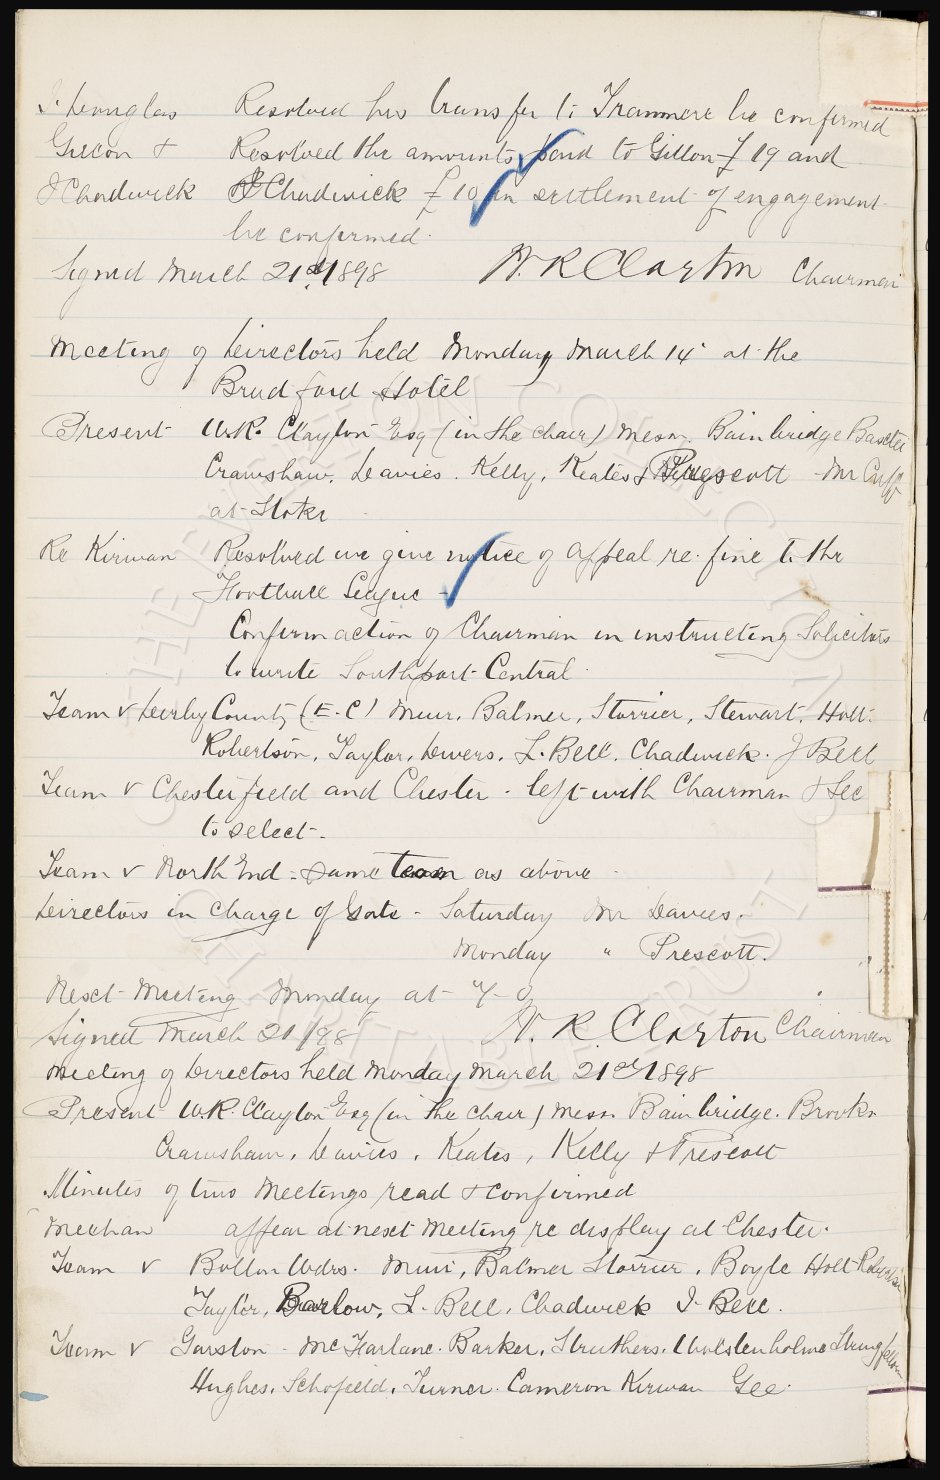 J. Douglas Resolved his transfer to Tranmere be confirmed
Gillon & Resolved the amounts paid to Gillon £19 and
J Chadwick J Chadwick £10 in settlement of engagement
be confirmed.
Signed March 21st/1898 W. R Clayton Chairman
Meeting of Directors held Monday March 14 at the
Bradford Hotel
Present W.R. Clayton Esq (in the chair) Messrs. Bainbridge Baxter
Crawshaw, Davies. Kelly, Keates & Prescott - Mr Cuff
at Stoke
Re Kirwan Resolved we give notice of appeal re. fine to the
Football League -
Confirm action of Chairman in instructing Solicitors
to write Southport Central
Team v Derby County (E.C) Muir, Balmer, Storrier, Stewart, Holt.
Robertson, Taylor, Divers. L. Bell. Chadwick. J Bell
Team v Chesterfield and Chester - left with Chairman & Sec
to select -
Team v North End = same team as above -
Directors in charge of Gate - Saturday Mr Davies.
Monday " Prescott.
Next Meeting Monday at 7-0
Signed March 21/98 W. R. Clayton Chairman
Meeting of Directors held Monday March 21st/1898
Present W.R. Clayton Esq (in the chair) Messrs Bainbridge. Brooks
Crawshaw, Davies, Keates, Kelly & Prescott
Minutes of two Meetings read & confirmed
Meehan appear at next Meeting re display at Chester.
Team v Bolton Wdrs. Muir, Balmer Storrier, Boyle Holt Robertson
Taylor, Barlow, L. Bell, Chadwick J. Bell.
Team v Garston - McFarlane. Barker, Struthers. Wolstenholme Stringfellow
Hughes, Schofield, Turner. Cameron Kirwan Gee.
THE EVERTON COLLECTION
CHARITABLE TRUST